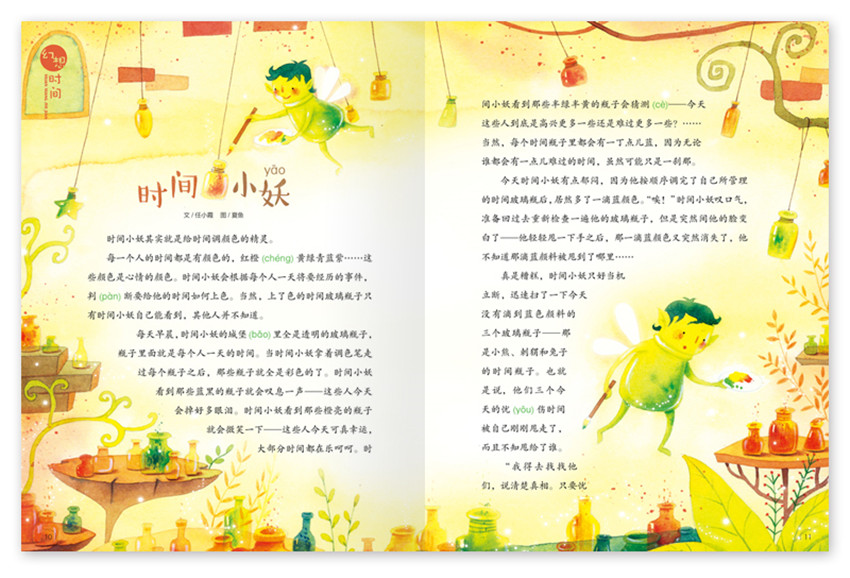 幻想
时间
时间小妖
yāo
文／任小霞 图／夏鱼
时间小妖其实就是给时间调颜色的精灵。
每一个人的时间都是有颜色的，红橙 (chéng) 黄绿青蓝紫……这
些颜色是心情的颜色。时间小妖会根据每个人一天将要经历的事件，
判 (pàn) 断要给他的时间如何上色。当然，上了色的时间玻璃瓶子只
有时间小妖自己能看到，其他人并不知道。
每天早晨，时间小妖的城堡 (bǎo) 里全是透明的玻璃瓶子，
瓶子里面就是每个人一天的时间。当时间小妖拿着调色笔走
过每个瓶子之后，那些瓶子就全是彩色的了。时间小妖
看到那些蓝黑的瓶子就会叹息一声——这些人今天
会掉好多眼泪。时间小妖看到那些橙亮的瓶子
就会微笑一下——这些人今天可真幸运，
大部分时间都在乐呵呵。时
10
间小妖看到那些半绿半黄的瓶子会猜测 (cè)——今天
这些人到底是高兴更多一些还是难过更多一些？……
当然，每个时间瓶子里都会有一丁点儿蓝，因为无论
谁都会有一点儿难过的时间，虽然可能只是一刹那。
今天时间小妖有点郁闷，因为他按顺序调完了自己所管理
的时间玻璃瓶后，居然多了一滴蓝颜色。“唉！”时间小妖叹口气，
准备回过去重新检查一遍他的玻璃瓶子，但是突然间他的脸变
白了——他轻轻甩一下手之后，那一滴蓝颜色又突然消失了，他
不知道那滴蓝颜料被甩到了哪里……
真是糟糕，时间小妖只好当机
立断，迅速扫了一下今天
没有滴到蓝色颜料的
三个玻璃瓶子——那
是小熊、刺猬和兔子
的时间瓶子。也就
是说，他们三个今
天的忧 (yōu) 伤时间
被自己刚刚甩走了，
而且不知甩给了谁。
“我得去找找他
们，说清楚真相。只要忧
11